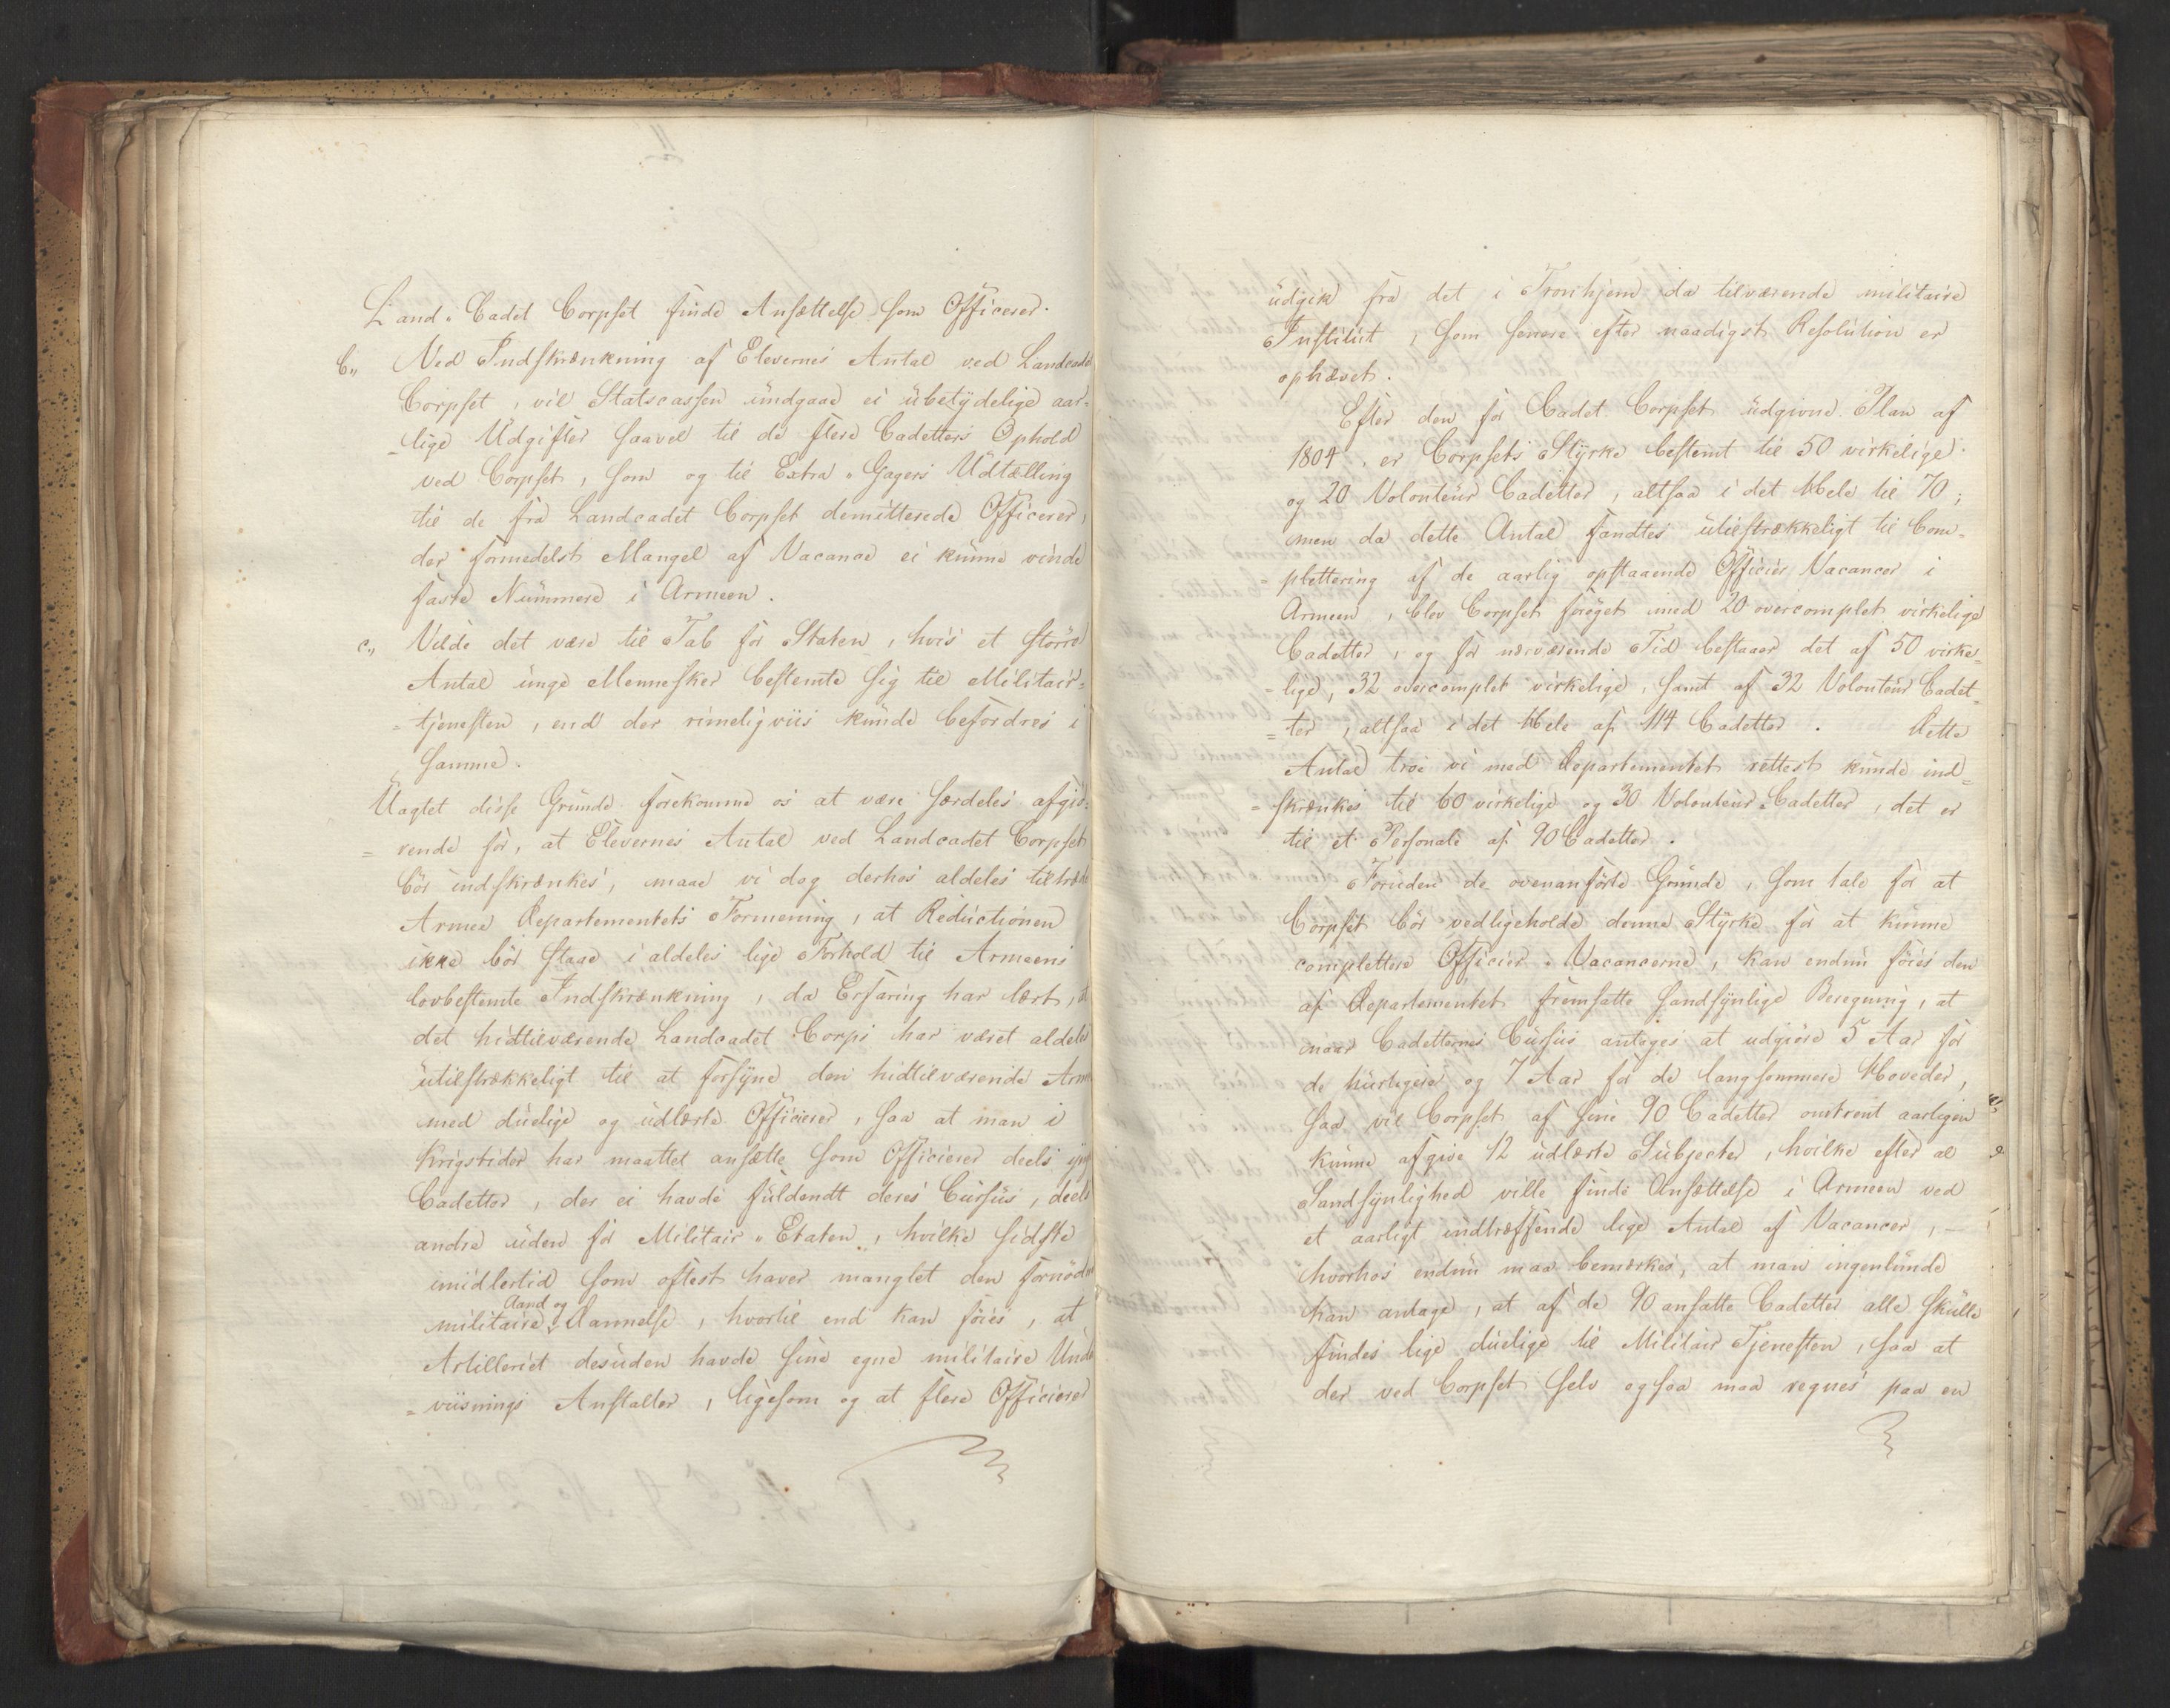 Land-Cadet Corpset finde Ansættelse som Officerer.
b,, Ved Indskrænkning af Elevernes Antal ved Landcadet
Corpset, vil Statscassen undgaae ei ubetydelige aar-
-lige Udgifter saavel til de flere Cadetters Ophold
ved Corpset, som og til Extra-Gagers Udtælling
til de fra Landcadet Corpset demitterede Officerer,
der formedelst Mangel af Vacance ei kunne vinde
faste Nummere i Armeen.
c,, Vilde det være til Tab for Staten, hvis et större
Antal unge Mennesker bestemte sig til Militair-
=tjenesten, end der rimeligviis kunde befordres i
samme.
Uagtet disse Grunde forekomme os at være særdeles afgiö-
=rende for, at Elevernes Antal ved Landcadet Corpset
bör indskrænkes, maae vi dog derhos aldeles tiltræde
Armee Departementets Formening, at Reductionen
ikke bör staae i aldeles lige Forhold til Armeens
lovbestemte Indskrænkning, da Erfaring har lært, at
det hidtilværende Landcadet Corps har været aldeles
utilstrækkeligt til at forsyne den hidtilværende Armee
med duelige og udlærte Officierer, saa at man i
Krigstider har maattet ansætte som Officierer deels
Cadetter, der ei havde fuldendt deres Cursus, deels
andre uden for Militair-Etaten, hvilke sidste
imidlertid som oftest haver manglet den fornödne
militaire Aand og Dannelse, hvortil end kan föies, at
Artilleriet desuden havde sine egne militaire Under
=viisnings Anstalter, ligesom og at flere Officierer
udgik fra det i Tronhjem da tilværende militaire
Institut, som senere efter naadigst Resolution er
ophævet.
Efter den for Cadet Corpset udgivne Plan af
1804, er Corpsets Styrke bestemt til 50 virkelige
og 20 Volonteur Cadetter, altsaa i det Hele til 70;
men da dette Antal fandtes utilstrækkeligt til Com-
=plettering af de aarlig opstaaende Officier Vacancer i
Armeen, blev Corpset foröget med 20 overcomplet virkelige
Cadetter, og for nærværende Tid bestaaer det af 50 virke-
lige, 32 overcomplet virkelige, samt af 32 Volonteur Cadet-
=ter, altsaa i det Hele af 114 Cadetter. Dette
Antal troe vi med Departementet rettest kunde ind-
=skrænkes til 60 virkelige og 30 Volonteur-Cadetter, det er
til et Personale af 90 Cadetter.
Foruden de ovenanförte Grunde, som tale for at
Corpset bör vedligeholde denne Styrke for at kunne
complettere Officier-Vacancerne, kan endnu föies den
af Departementet fremsatte sandsynlige Beregning, at
naar Cadetternes Cursus antages at udgiöre 5 Aar for
de hurtigere og 7 Aar for de langsommere Hoveder,
saa vil Corpset af sine 90 Cadetter omtrent aarligen
kunne afgive 12 udlærte Subjecter, hvilke efter al
Sandsynlighed ville finde Ansættelse i Armeen ved
et aarligt indtræffende lige Antal af Vacancer, —
hvorhos endnu maa bemærkes, at man ingenlunde
kan antage, at af de 90 ansatte Cadetter alle skulle
findes lige duelige til Militair Tjenesten, saa at
der ved Corpset selv ogsaa maa regnes paa en